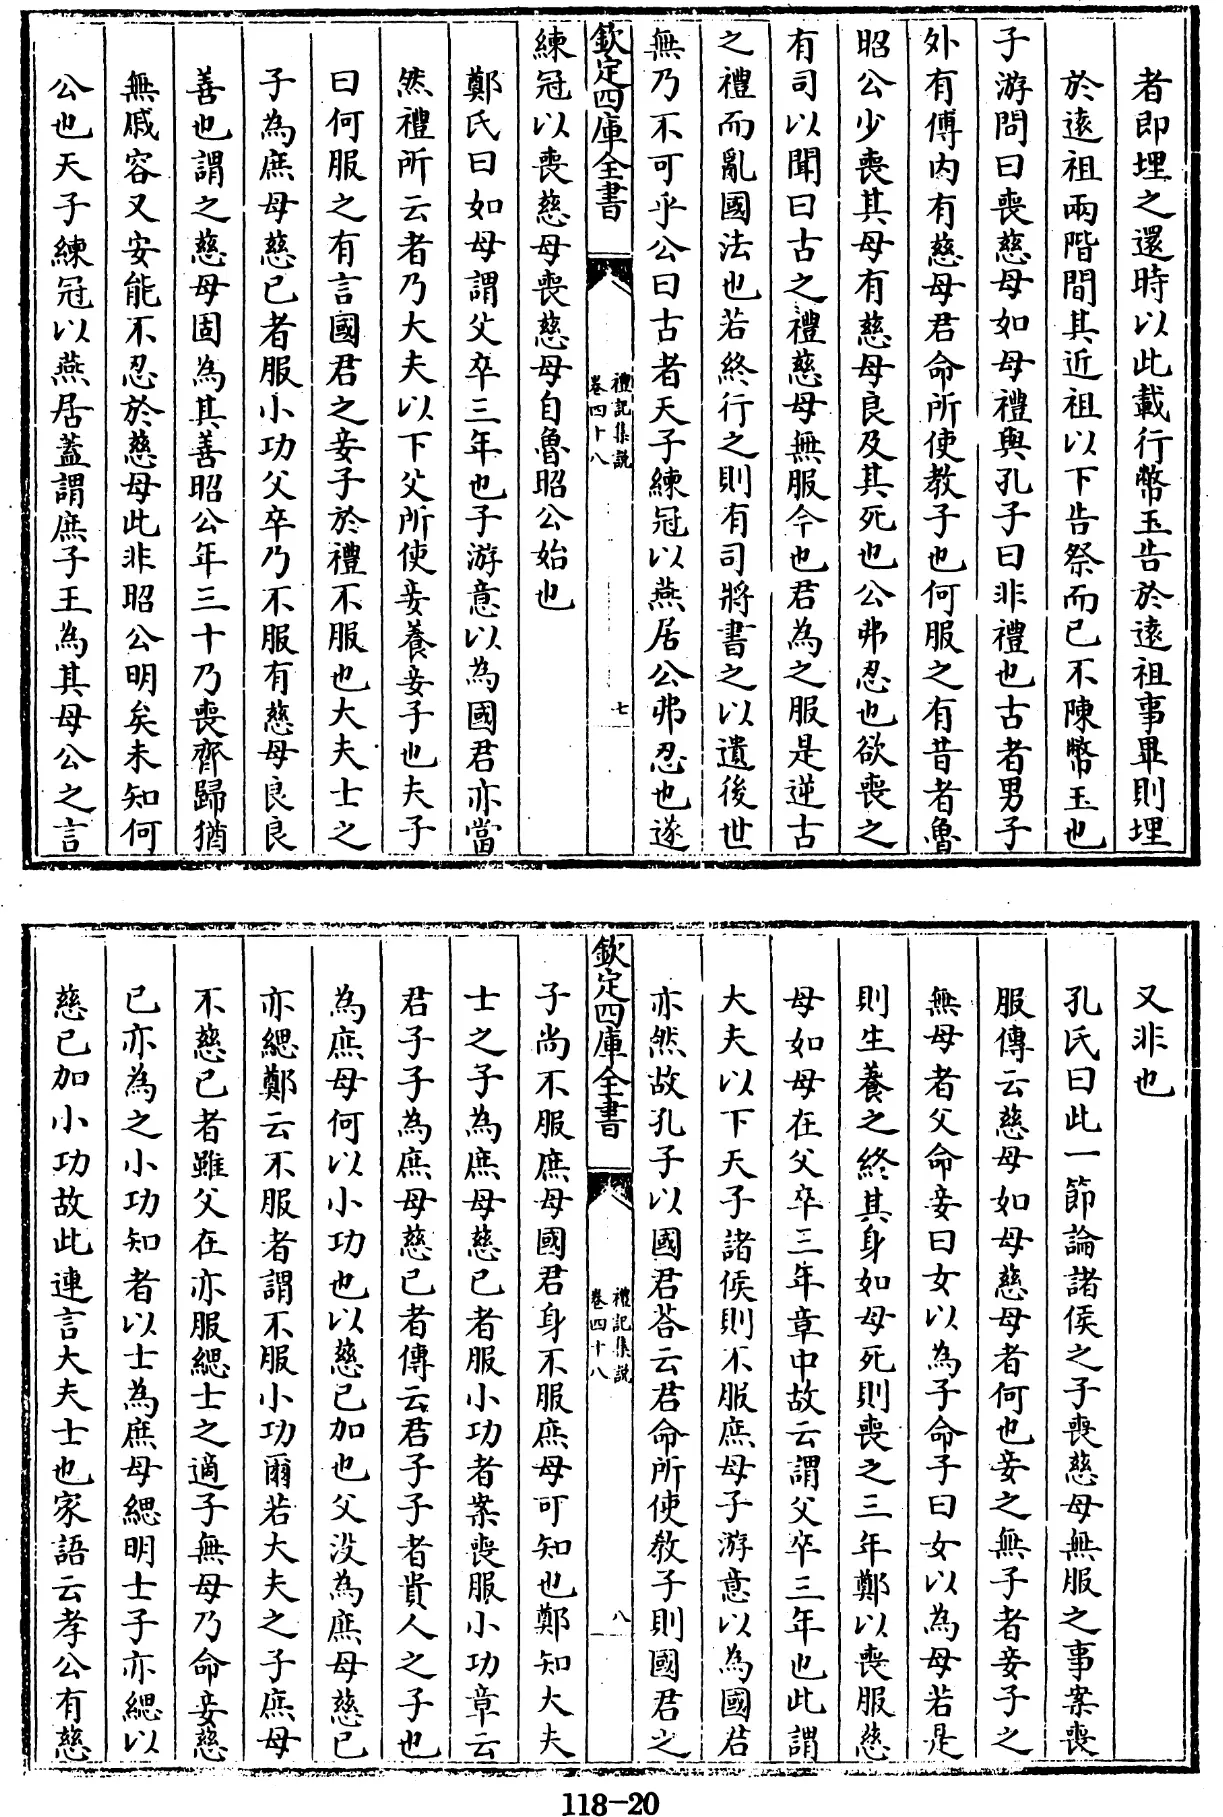 者即埋之還時以此載行幣玉告於遠祖事畢則埋
於遠祖兩階間其近祖以下告祭而已不陳幣玉也
子游問曰喪慈母如母禮與孔子曰非禮也古者男子
外有傅内有慈母君命所使教子也何服之有昔者魯
昭公少喪其母有慈母良及其死也公弗忍也欲喪之
有司以聞曰古之禮慈母無服今也君為之服是逆古
之禮而亂國法也若終行之則有司將書之以遺後世
無乃不可乎公曰古者天子練冠以燕居公弗忍也遂
欽定四庫全書
禮記集說
卷四十八
七
練冠以喪慈母喪慈母自魯昭公始也
鄭氏曰如母謂父卒三年也子游意以為國君亦當
然禮所云者乃大夫以下父所使妾養妾子也夫子
曰何服之有言國君之妾子於禮不服也大夫士之
子為庶母慈已者服小功父卒乃不服有慈母良良
善也謂之慈母固為其善昭公年三十乃喪齊歸猶
無戚容又安能不忍於慈母此非昭公明矣未知何
公也天子練冠以燕居蓋謂庶子王為其母公之言
又非也
孔氏曰此一節論諸侯之子喪慈母無服之事案喪
服傳云慈母如母慈母者何也妾之無子者妾子之
無母者父命妾曰女以為子命子曰女以為母若是
則生養之終其身如母死則喪之三年鄭以喪服慈
母如母在父卒三年章中故云謂父卒三年也此謂
大夫以下天子諸侯則不服庶母子游意以為國君
亦然故孔子以國君荅云君命所使教子則國君之
欽定四庫全書
禮記集說
卷四十八
八
子尚不服庶母國君身不服庶母可知也鄭知大夫
士之子為庶母慈已者服小功者案喪服小功章云
君子子為庶母慈已者傳云君子子者貴人之子也
為庶母何以小功也以慈已加也父没為庶母慈已
亦緦鄭云不服者謂不服小功爾若大夫之子庶母
不慈已者雖父在亦服緦士之適子無母乃命妾慈
已亦為之小功知者以士為庶母緦明士子亦緦以
慈已加小功故此連言大夫士也家語云孝公有慈
118-20